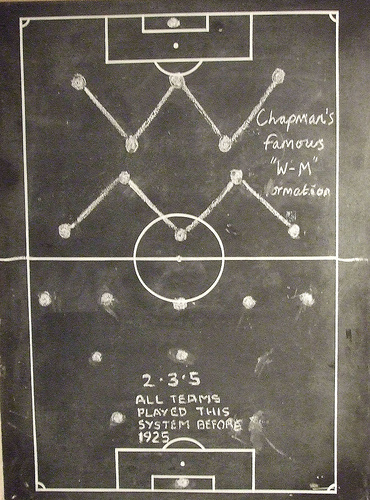 Chapman's
famous
"W-M"
ormation
2·3·5
ALL TEAMS
PLAYED THIS
SYSTEM BEFORE
1925